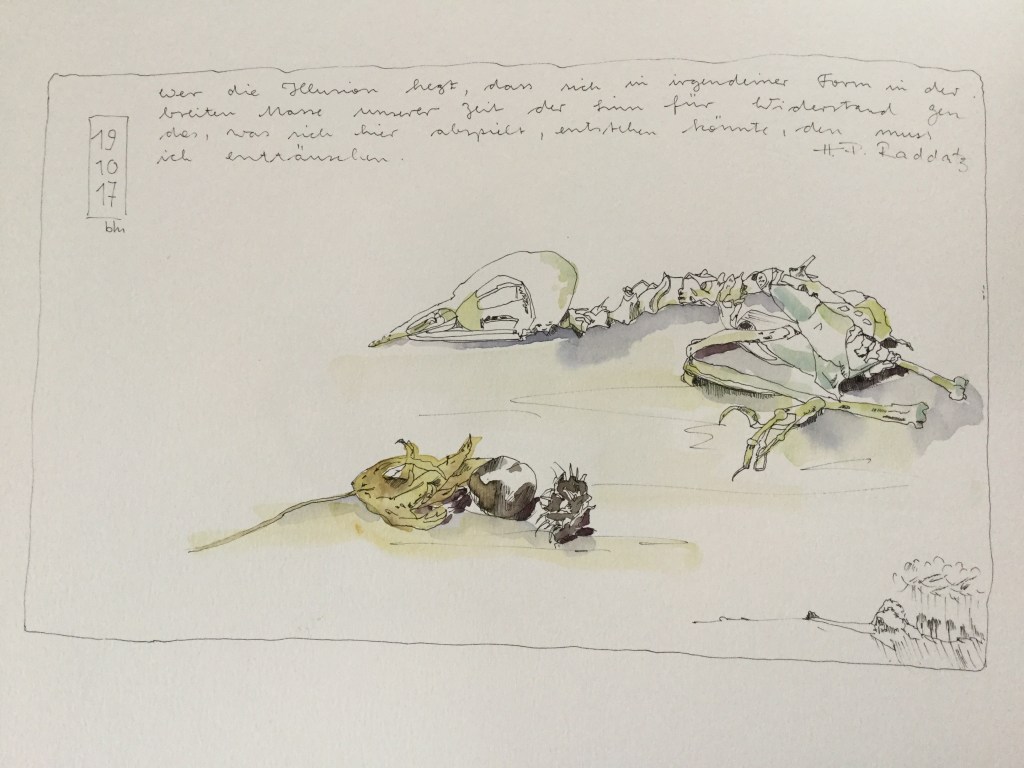 wer die Illusion hegt, dass sich in irgendeiner Form in der
breiten Masse unserer Zeit der Sinn für Widerstand gen
das, was sich hier abspielt, entstehen könnte, den muss
ich enttäuschen.
H.-P. Raddatz
19
10
17